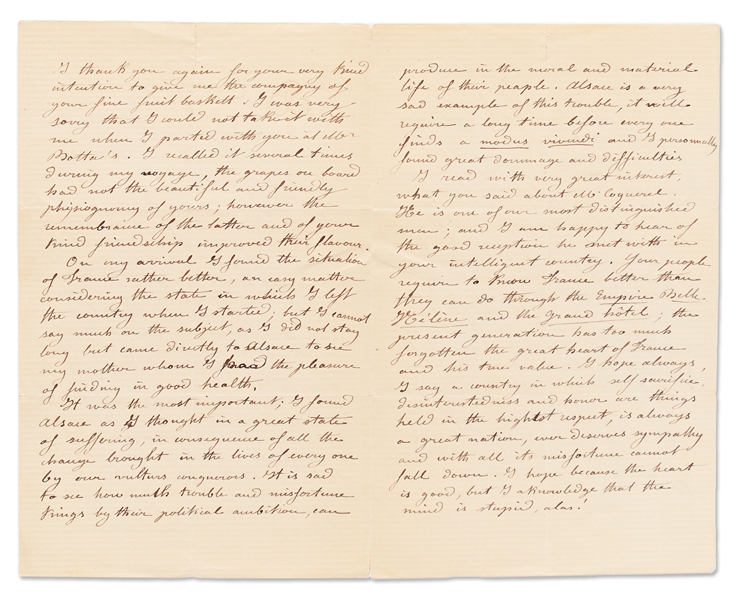 I thank you again for your very kind
intention to give me the compagny of
your fine fruit baskett. I was very
sorry that I could not take it with
me when I parted with you at Mr
Botta's. I recalled it several times
during my voyage, the grapes on board
had not the beautiful and friendly
physiognomy of yours; however the
remembrance of the latter and of your
kind friendship improved their flavour.
On my arrival I found the situation
of France rather better, an easy matter
considering the state in which I left
the country when I started; but I cannot
say much on the subject, as I did not stay
long but came directly to Alsace to see
my mother whom I had the pleasure
of finding in good health.
It was the most important; I found
Alsace as I thought in a great state
of suffering, in consequence of all the
change brought in the lives of every one
by our vulturs conquerors. It is sad
to see how much trouble and misfortune
Kings by their political ambition, can
produce in the moral and material
life of their people. Alsace is a very
sad example of this trouble, it will
require a long time before every one
finds a modus vivendi and I personnally
found great dommage and difficulties
I read with very great interest,
what you said about M. Coquerel.
He is one of our most distinguished
men; and I am happy to hear of
the good reception he met with in
your intelligent country. Your people
require to know France better than
they can do through the Empire Belle-
Hélène and the Grand hôtel; the
present generation has too much
forgotten the great heart of France
and his true value. I hope always,
I say a country in which self sacrifice,
disinterestedness and honor are things
held in the highest respect, is always
a great nation, ever deserves sympathy
and with all its misfortune cannot
fall down. I hope because the heart
is good, but I aknowledge that the
mind is stupid, alas!